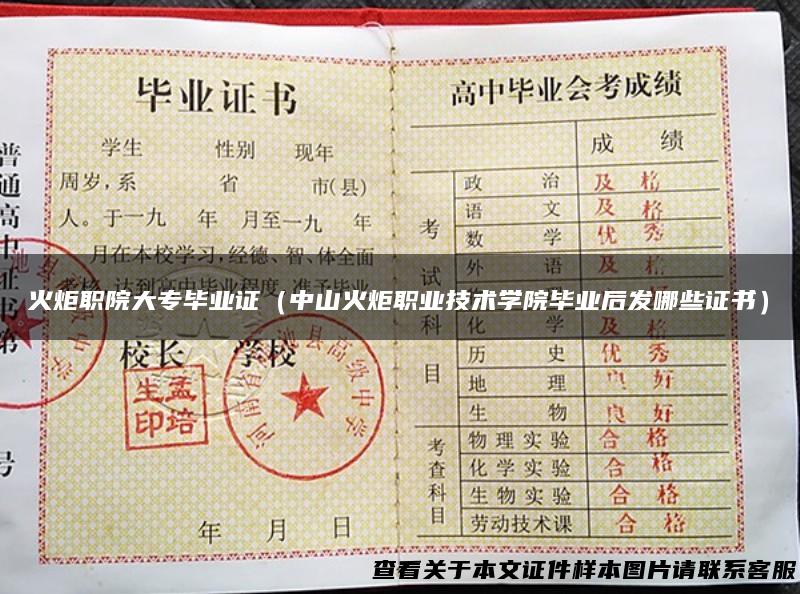 毕业证书
学生 性别 现年
周岁,系 省 市(县)
人。于一九 年 月至一九 年
月在本校学习,经德、智、体全面
校长 学校
孟培生印
河南省 池县高级中学
年 月 日
高中毕业会考成绩
成 绩
考试科目
政 治 及 格
语 文 及 格
数 学 优 秀
外 语 及 格
化 学
历 史 优 秀
地 理 良 好
生 物 良 好
考查科目
物理实验 合 格
化学实验 合 格
生物实验 合 格
劳动技术课 合 格
普通高中证书第
号
火炬职院大专毕业证(中山火炬职业技术学院毕业后发哪些证书)
查看关于本文证件样本图片请联系客服